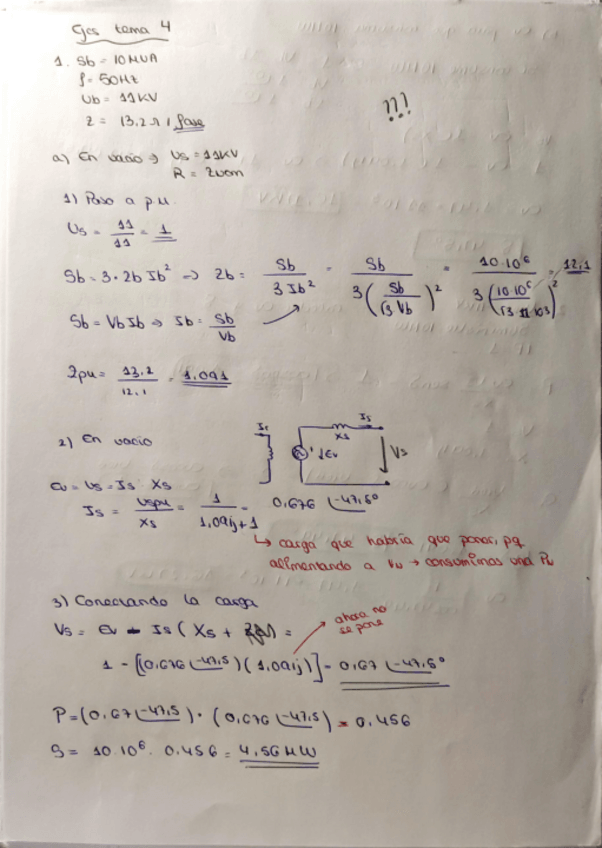 Ejes tema 4
1. Sb = 10 MVA
f = 50Hz
Ub = 11KV
Z = 13.2 Ω / fase
???
a) En vacio → Us = 11KV
R = 2 ohm
1) Paso a p.u.
Us = 11/11 = 1
Sb = 3·Zb Ib² → Zb = Sb/(3 Ib²) = Sb/(3(Sb/(√3 Vb))²) = 10·10⁶/(3(10·10⁶/(√3 11·10³))²) = 12,1
Sb = Vb Ib → Ib = Sb/Vb
Zpu = 13,2/12,1 = 1.091
2) En vacio
Is
Xs
Ev
Vs
Ev = Us = Is · Xs
Is = Uspu/Xs = 1/(1,09j+1) = 0,676 ∠-47,5º
↳ carga que habría que poner, pq
alimentando a Vu → consumimos una Pu
3) Conectando la carga
ahora no
se pone
Vs = Ev - Is (Xs + ) =
1 - [(0,676 ∠-47,5)(1,09j)] = 0,67 ∠-47,5º
P = (0,67 ∠-47,5) · (0,676 ∠-47,5) = 0,456
S = 10·10⁶ · 0,456 = 4,56 MW